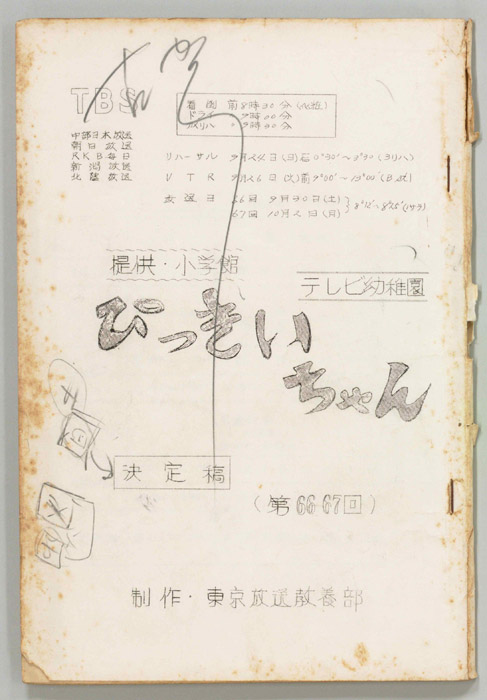 TBS
中部日本放送
朝日放送
RKB毎日
新潟放送
北陸放送
着函 前8時30分
ドライ 〃 9時00分
カメリハ 〃 9時30分
リハーサル 9月24日(日)后0°30'~3°30
VTR 9月26日(火)前9°00'~13°00'(Bst)
放送日 66回 9月30日(土)
67回 10月2日(月)
8°12'~8°25'
提供・小学館
テレビ幼稚園
ぴっきい
ちゃん
決定稿
(第66 67回)
制作・東京放送教養部